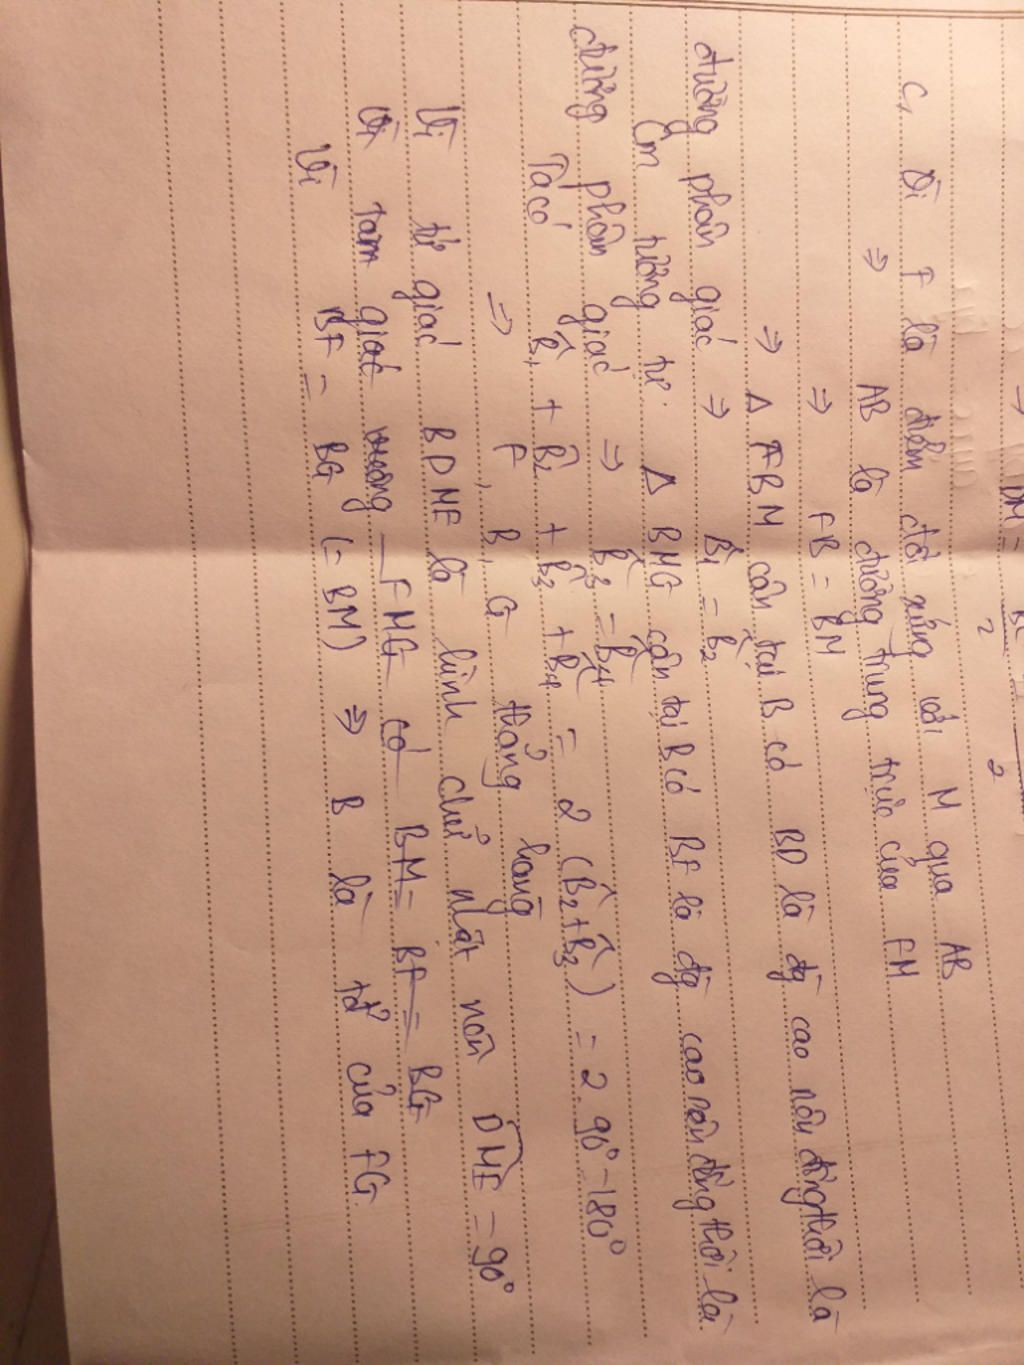 DM =
2
2
c, Vì F là điểm đối xứng với M qua AB
⇒ AB là đường trung trực của FM
⇒ FB = BM
⇒ Δ FBM cân tại B có BD là đg cao nên đồng thời là
đường phân giác ⇒ B̂1 = B̂2
Cm tương tự Δ BMG cân tại B có BE là đg cao nên đồng thời là
đường phân giác ⇒ B̂3 = B̂4
Ta có B̂1 + B̂2 + B̂3 + B̂4 = 2 (B̂2 + B̂3) = 2. 90° = 180°
⇒ F, B, G thẳng hàng
Vì tứ giác BDME là hình chữ nhật nên DME = 90°
Vì tam giác vuông FMG có BM = BF = BG
Vì BF = BG (= BM) ⇒ B là tđ của FG